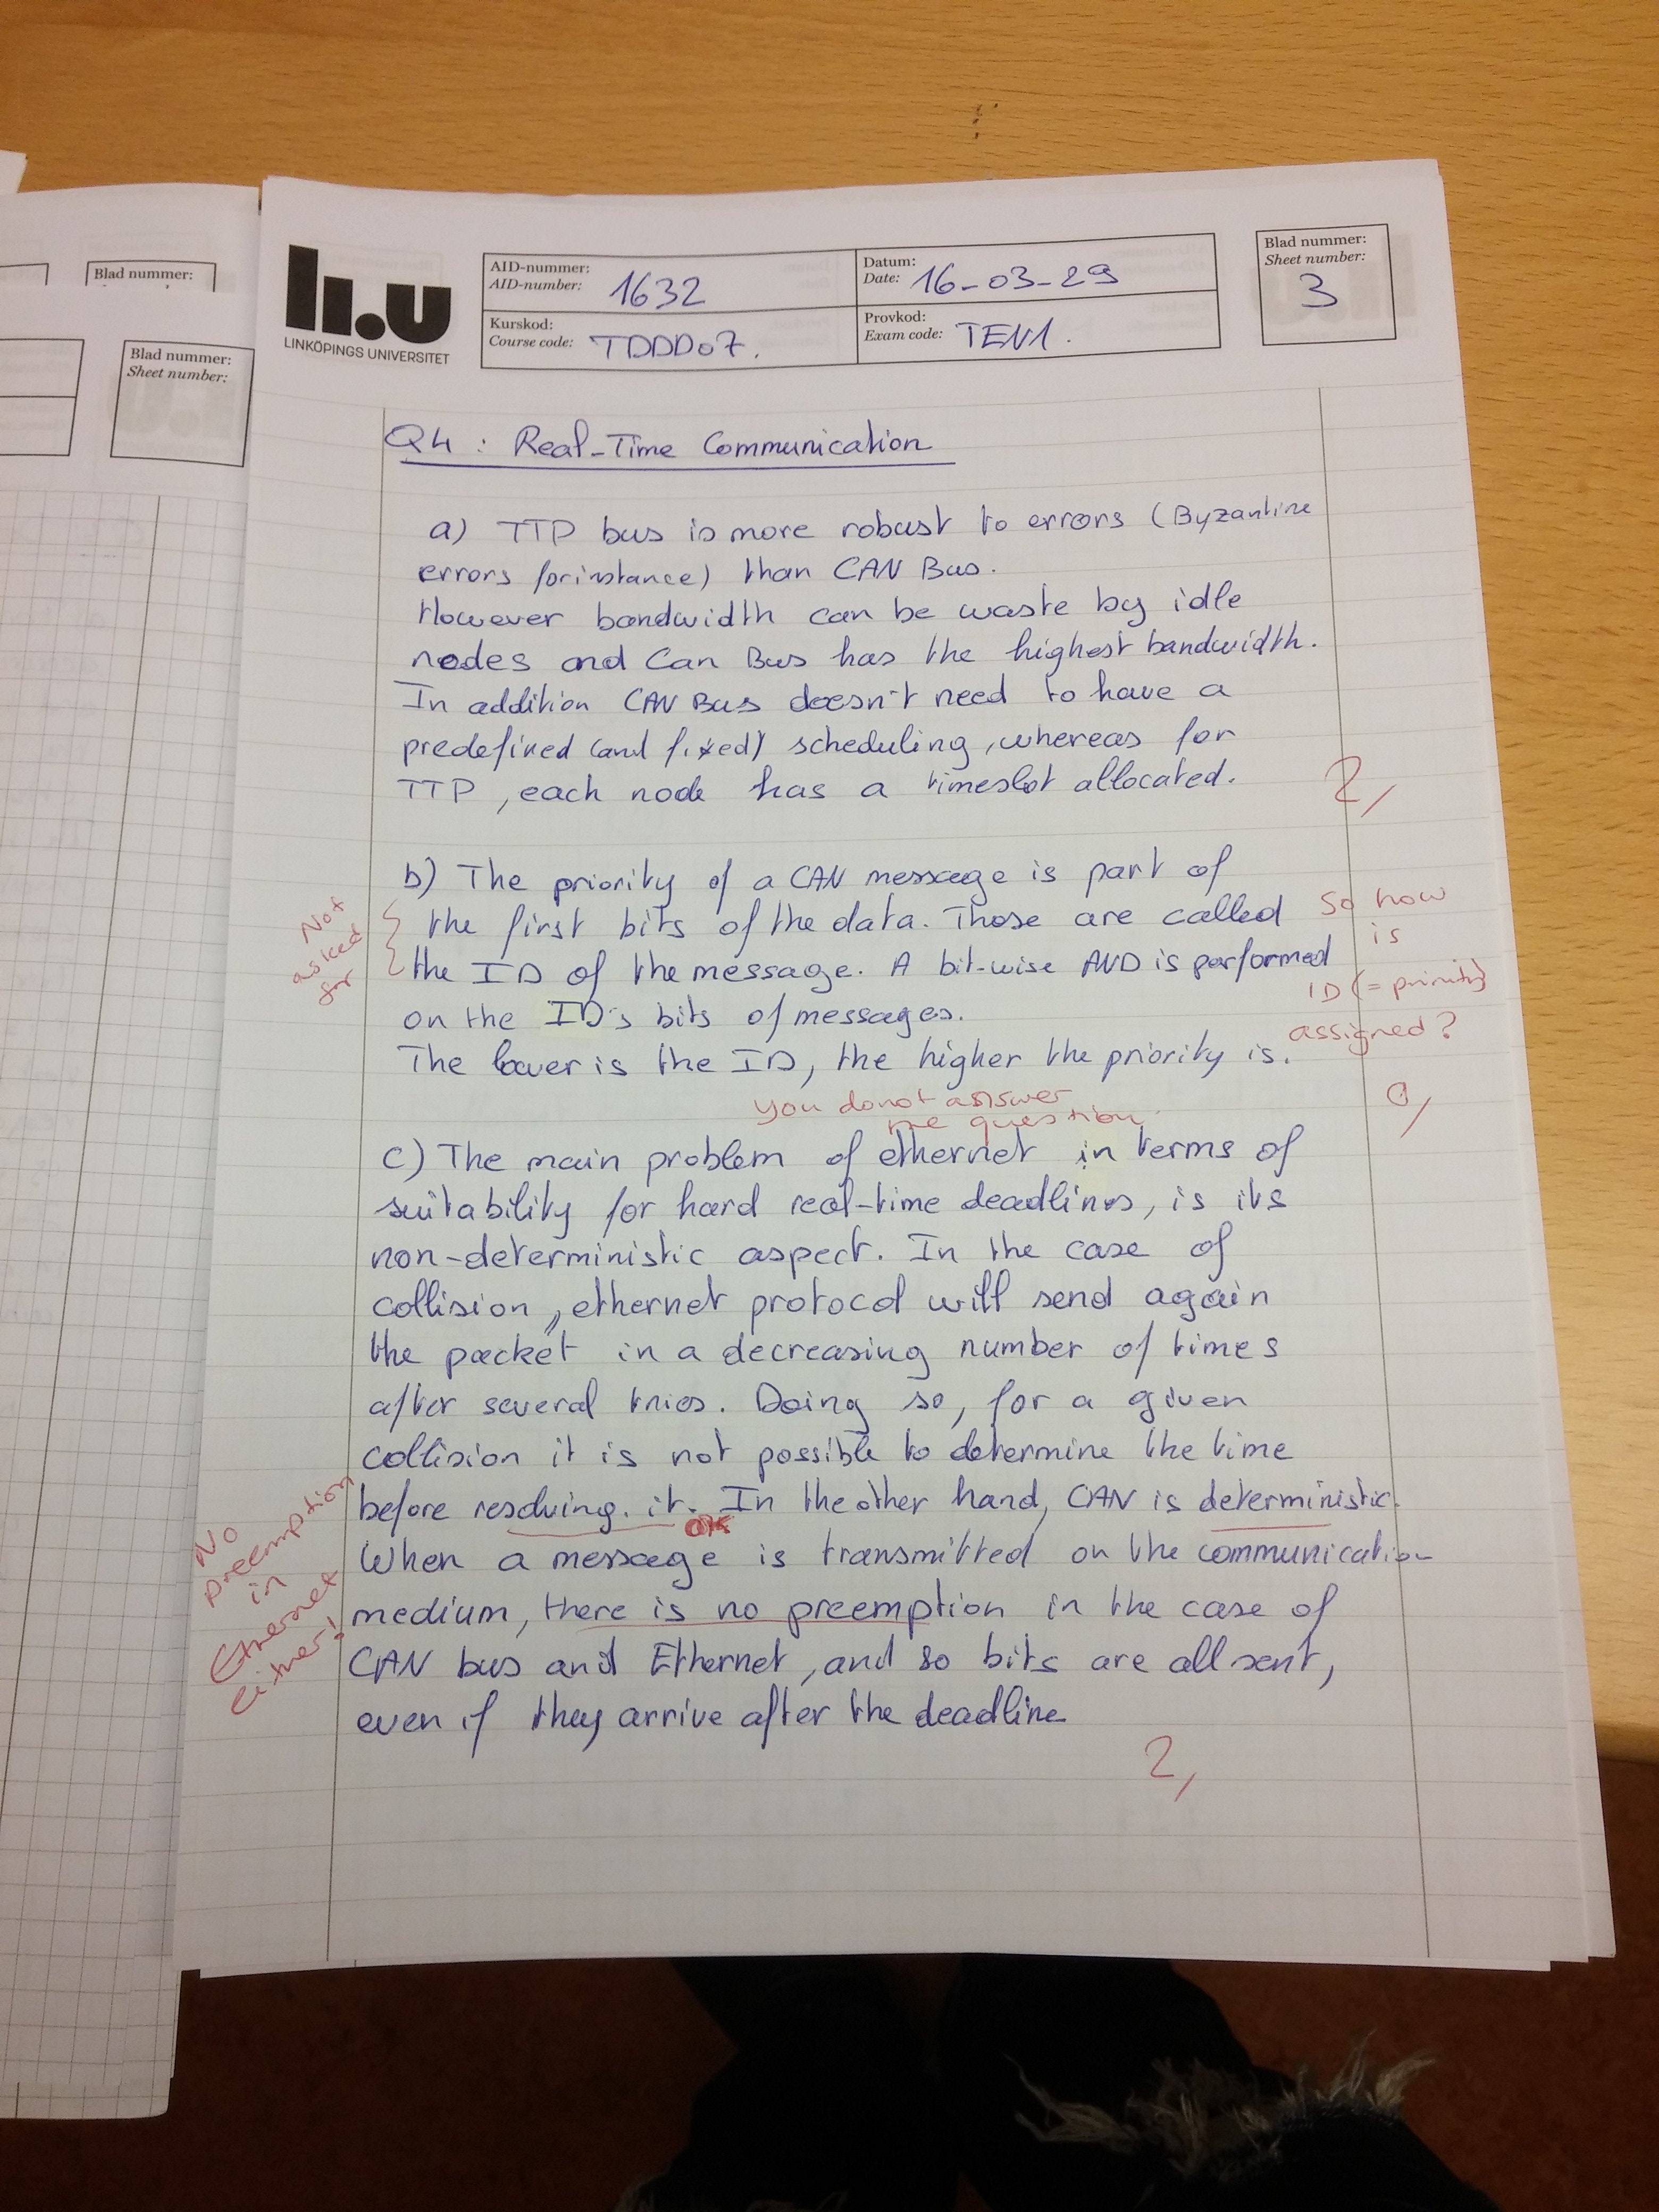 Blad nummer:
Blad nummer:
Sheet number:
LINKÖPINGS UNIVERSITET
AID-nummer:
AID-number: 1632
Datum:
Date: 16-03-29
Kurskod:
Course code: TDDD07.
Provkod:
Exam code: TEN1.
Blad nummer:
Sheet number:
3
Q4 : Real-Time Communication
a) TTP bus is more robust to errors (Byzantine
errors for instance) than CAN Bus.
However bandwidth can be waste by idle
nodes and Can Bus has the highest bandwidth.
In addition CAN Bus doesn't need to have a
predefined (and fixed) scheduling, whereas for
TTP, each node has a timeslot allocated.
2,
b) The priority of a CAN message is part of
the first bits of the data. Those are called
the ID of the message. A bit-wise AND is performed
on the ID's bits of messages.
The lower is the ID, the higher the priority is.
Not
asked
for
So how
is
ID (= priority)
assigned?
you do not answer
the question
0,
c) The main problem of ethernet in terms of
suitability for hard real-time deadlines, is its
non-deterministic aspect. In the case of
collision, ethernet protocol will send again
the packet in a decreasing number of times
after several tries. Doing so, for a given
collision it is not possible to determine the time
before resolving it. In the other hand, CAN is deterministic.
OK
When a message is transmitted on the communication
medium, there is no preemption in the case of
CAN bus and Ethernet, and so bits are all sent,
even if they arrive after the deadline
No
preemption
in
Ethernet
either!
2,